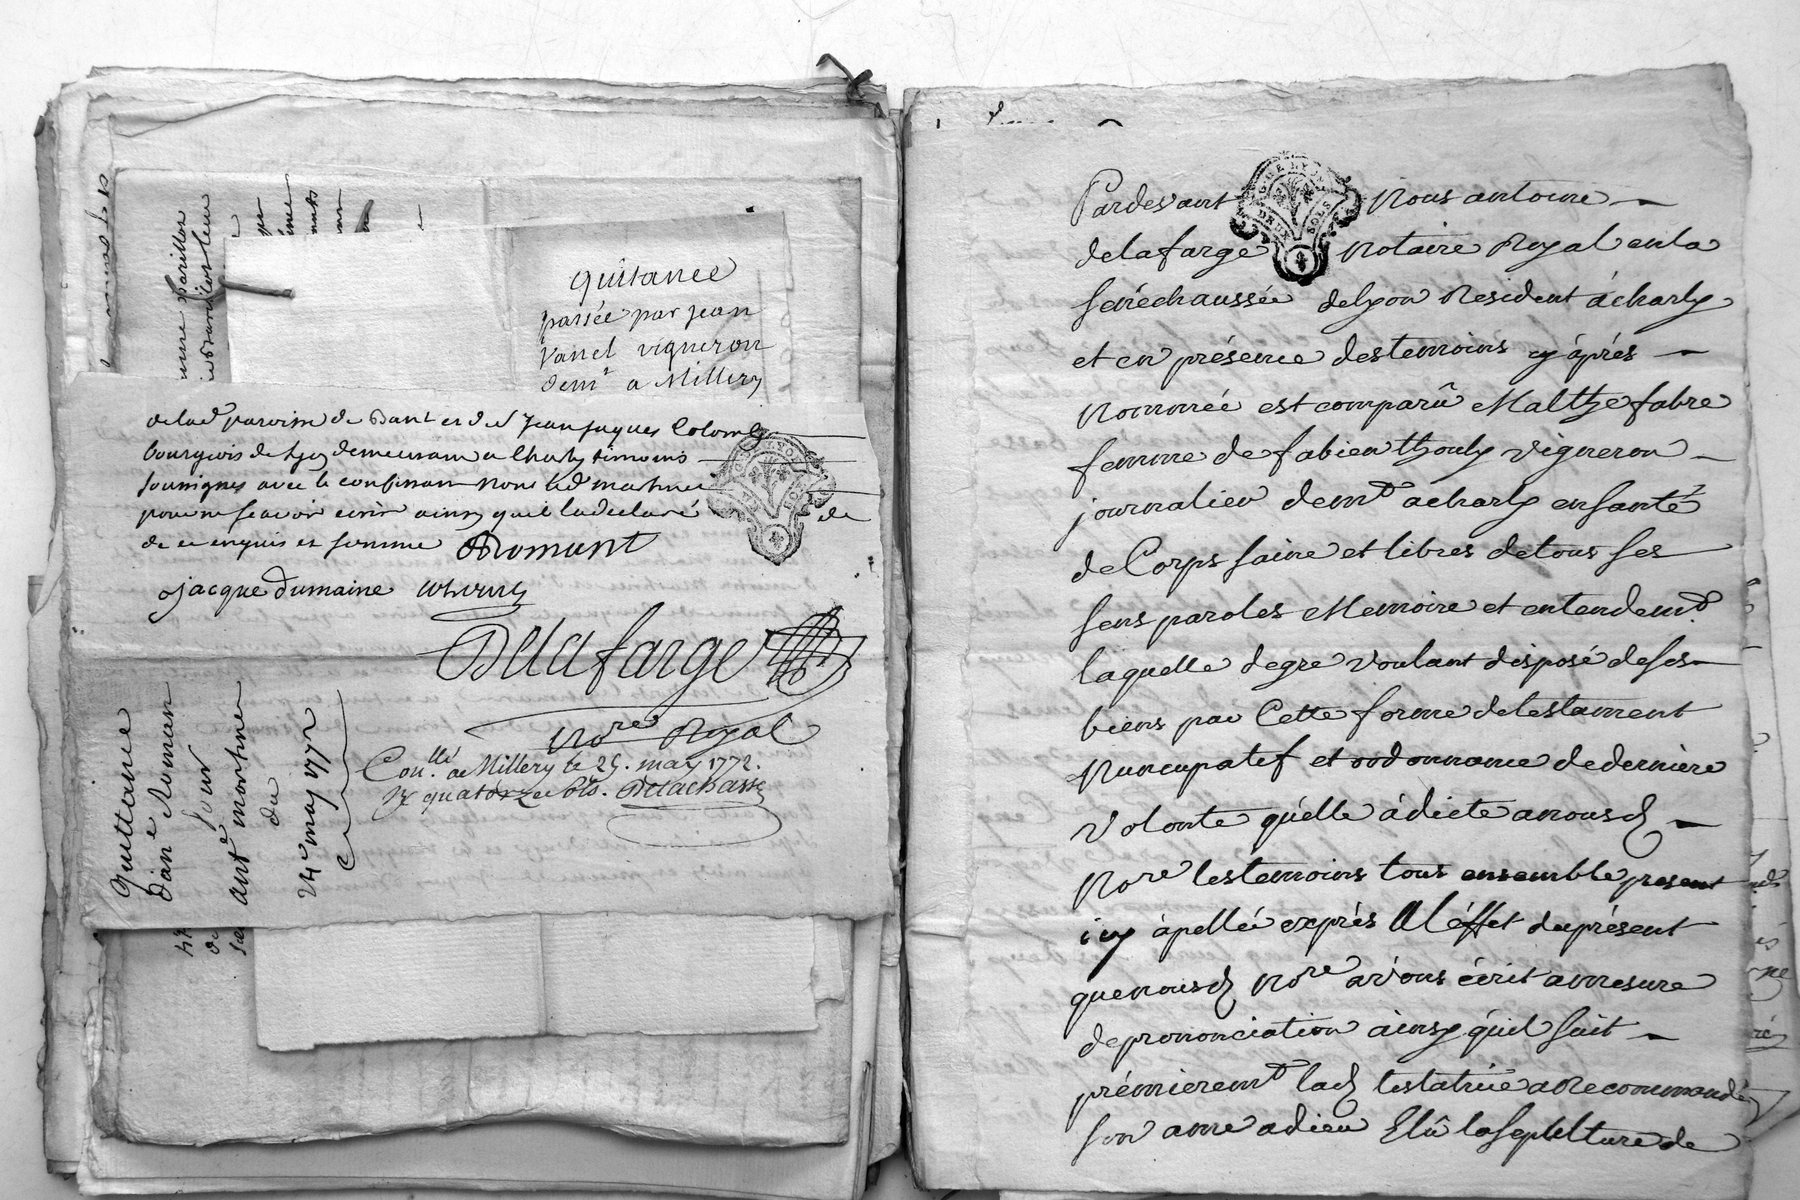 quitance
passée par jean
vanel vigneron
demt a Millery
de lad paroisse de et de sr Jean Jaques Colomb
bourgeois de lyon demeurant a Charly temoins
soussignes avec le confessant non led martinet
pour ne scavoir ecrire ainsy quil la declaré de
de ce enquis et somme DRomant
Jacque Dumaine
Delafarge
Nore Royal
Conllé a Millery le 25. may 1772.
Rx quatorze sols. Delachasse
Quittance
d'ané Romans
pour
ant martinet
du
24e may 1772
DEUX SOLS
G·DE LYON
Pardevant Nous antoine
delafarge Notaire Royal en la
senéchaussée de lyon Resident à charly
et en présence des temoins cy àprés
Nommée est comparû Malthe fabre
femme de fabien thouly vigneron
journalier demt a charly en santé
de Corps saine et libres de tous ses
sens paroles Memoire et entendemt
laquelle de gre voulant disposé de ses
biens par Cette forme de testament
Nuncupatif et ordonnance de derniére
volonte qu'elle à dicte a nousd
Nore les temoins tous ensemble present
icy àpellée exprés Al éffet du présent
que nousd Nore avons écrit a mesure
de prononciation àinsy qu'il suit
prémieremt lad testatrice a Recommandé
son ame a dieu Elû la sepulture de